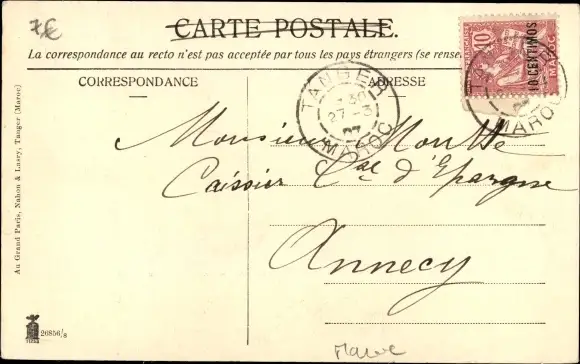 7,€
CARTE POSTALE.
La correspondance au recto n'est pas acceptée par tous les pays étrangers (se rense
CORRESPONDANCE
ADRESSE
TANGER
7 30
27 -3
07
MAROC
10
10 CENTIMOS
MAROC
MAROC
Monsieur
Caissier Cse d'Epargne
Annecy
Au Grand Paris, Nahon & Lasry, Tanger (Maroc)
26856/8
Maroc